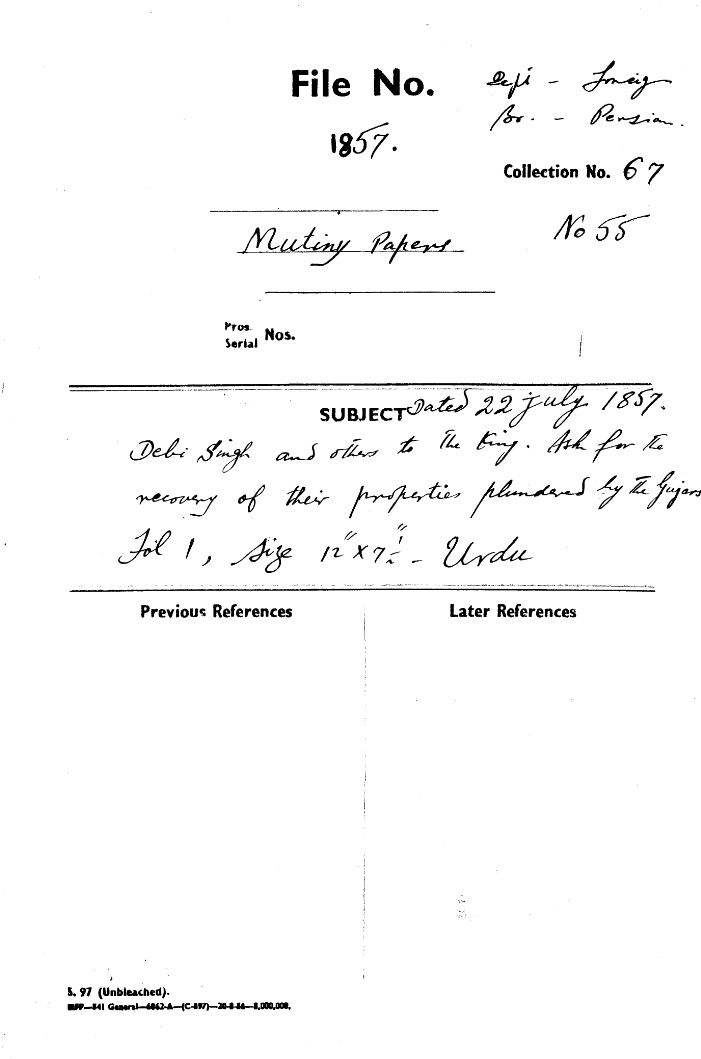 File No.
Dept - Foreig
Br. - Persian.
1857.
Collection No. 67
Mutiny Papers
No 55
Pros. Serial Nos.
SUBJECT Dated 22 july 1857.
Debi Singh and others to the King. Ask for the
recovery of their properties plundered by the Gujars
Fol 1, Size 12" x 7½" - Urdu
Previous References Later References
S. 97 (Unbleached).
MFP—541 General—6862-A—(C-897)—20-8-56—8,000,000.